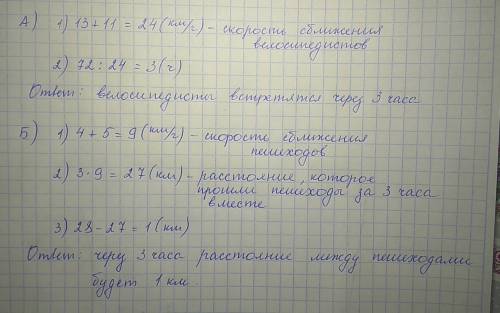 А) 1) 13 + 11 = 24 (км/г) - скорость сближения
велосипедистов
2) 72 : 24 = 3 (г)
Ответ: велосипедисты встретятся через 3 часа
Б) 1) 4 + 5 = 9 (км/г) - скорость сближения
пешеходов
2) 3 · 9 = 27 (км) - расстояние, которое
прошли пешеходы за 3 часа
вместе
3) 28 - 27 = 1 (км)
Ответ: через 3 часа расстояние между пешеходами
будет 1 км.